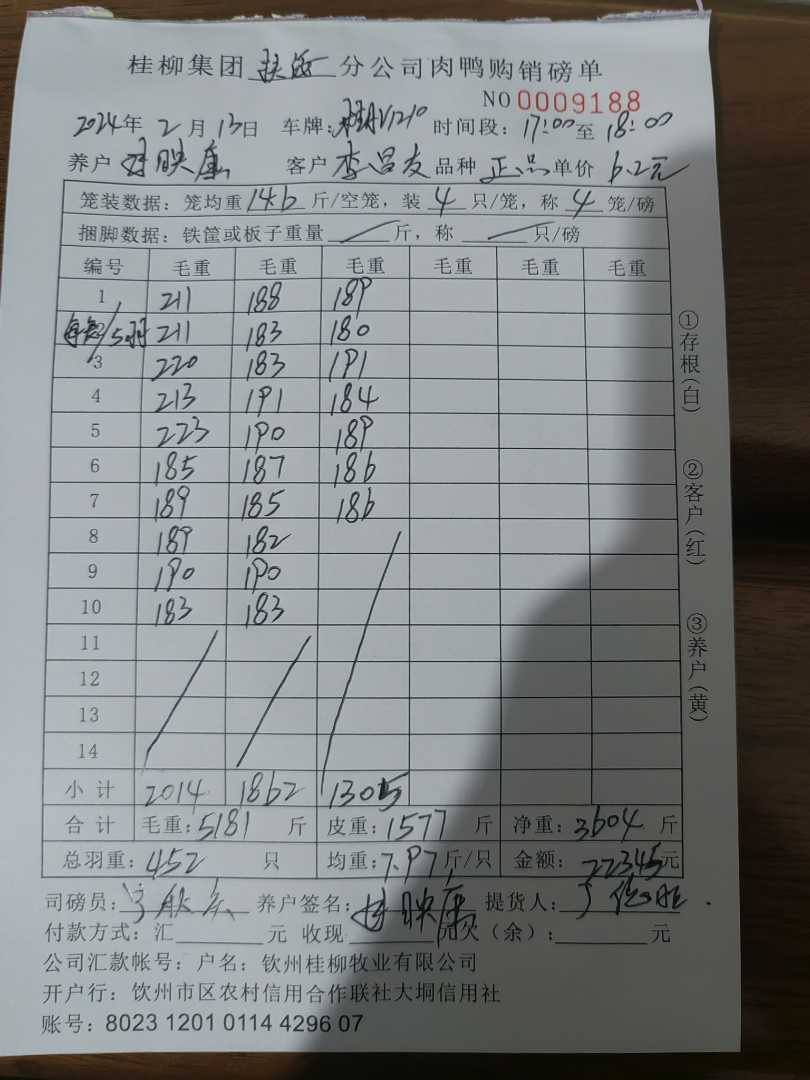 桂柳集团 扶 分公司肉鸭购销磅单
NO 0009188
2024年 2月 13日 车牌: 桂AV1210 时间段: 17:00至 18:00
养户 映康 客户 李吕友 品种 正品 单价 6.2元
笼装数据: 笼均重 14.6 斤/空笼, 装 4 只/笼, 称 4 笼/磅
捆脚数据: 铁筐或板子重量 斤, 称 只/磅
编号 毛重 毛重 毛重 毛重 毛重 毛重
1 211 188 189
/5羽 211 183 180
3 220 183 191
4 213 191 184
5 223 190 189
6 185 187 186
7 189 185 186
8 189 182
9 190 190
10 183 183
11
12
13
14
小计 2014 1862 1305
合计 毛重: 5181 斤 皮重: 1577 斤 净重: 3604 斤
总羽重: 452 只 均重: 7.97斤/只 金额: 22345元
司磅员: 养户签名: 映康 提货人:
付款方式: 汇 元 收现 元欠(余): 元
公司汇款帐号: 户名: 钦州桂柳牧业有限公司
开户行: 饮州市区农村信用合作联社大垌信用社
账号: 8023 1201 0114 4296 07
①存根(白)
②客户(红)
③养户(黄)